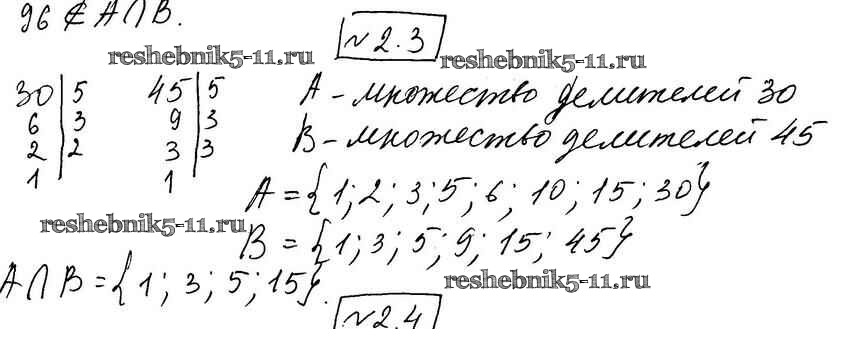 96 ∉ A∩B.
№2.3
reshebnik5-11.ru reshebnik5-11.ru
30|5 45|5 A - множество делителей 30
6|3 9|3 B - множество делителей 45
2|2 3|3
1| 1|
A = {1; 2; 3; 5; 6; 10; 15; 30}
reshebnik5-11.ru
B = {1; 3; 5; 9; 15; 45}
A∩B = {1; 3; 5; 15}.
reshebnik5-11.ru
№2.4